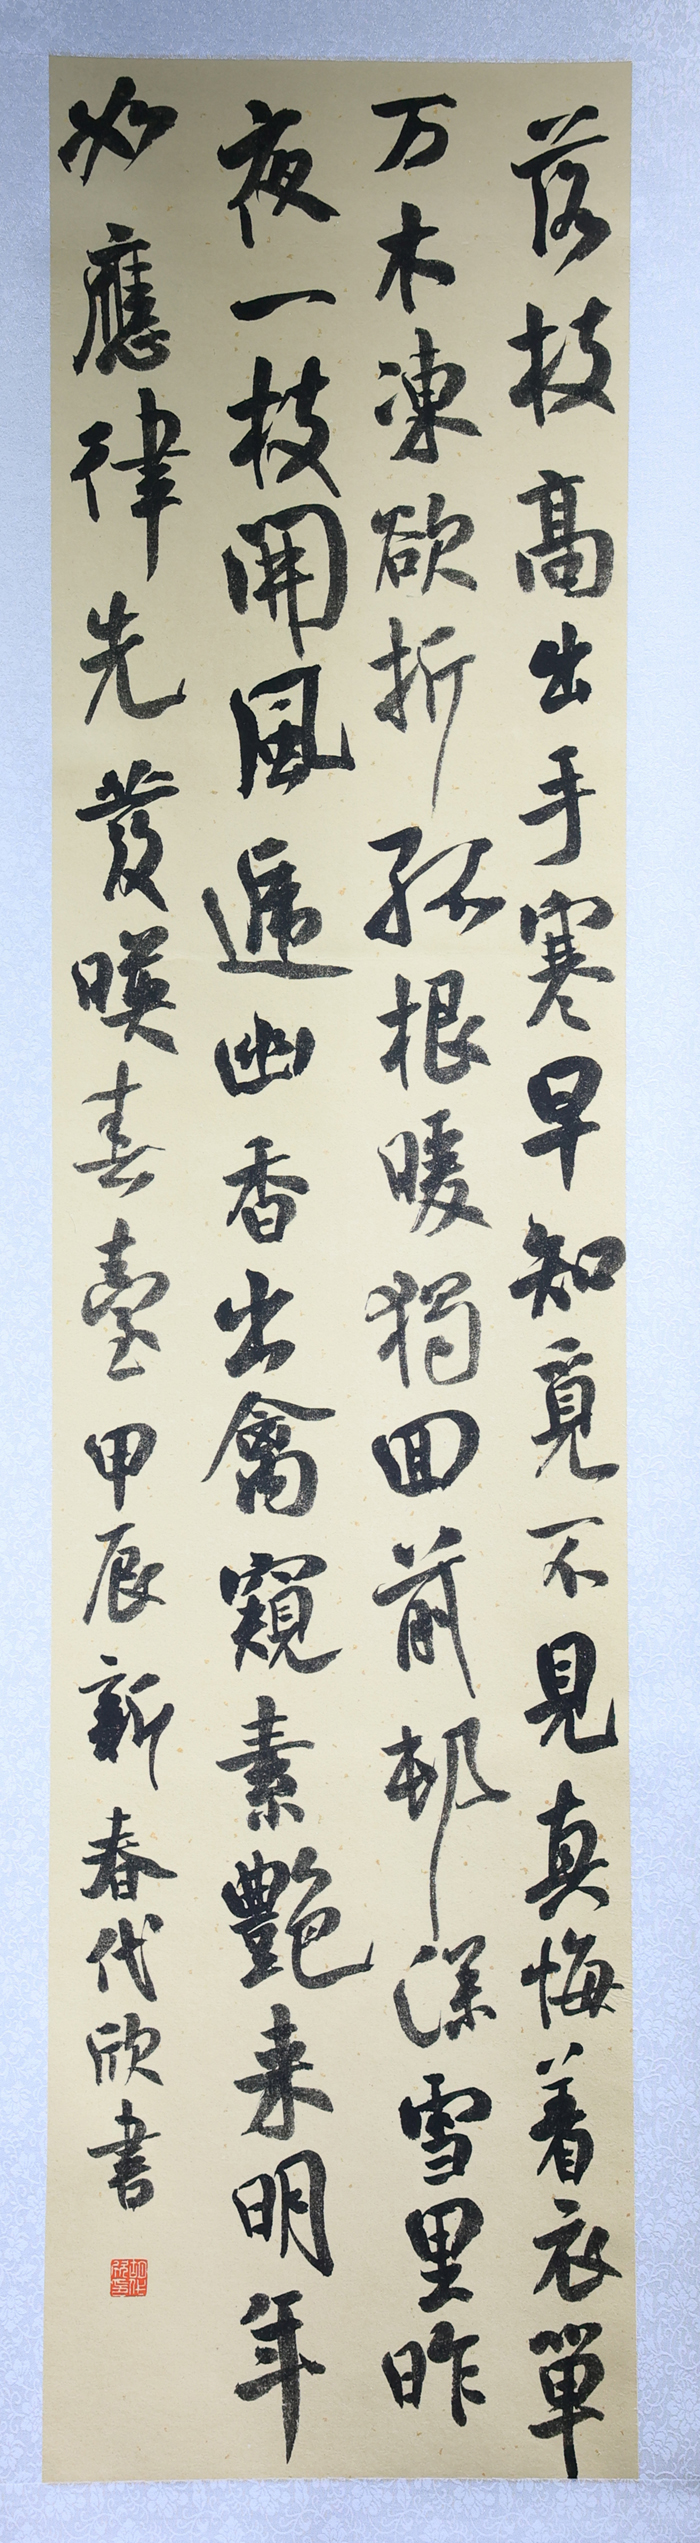 落枝高出手寒早知覓不見真悔着衣單
万木凍欲折孤根暖獨回前邨深雪里昨
夜一枝開風遞幽香出禽窺素艷来明年
如應律先發暎春臺甲辰新春代欣書